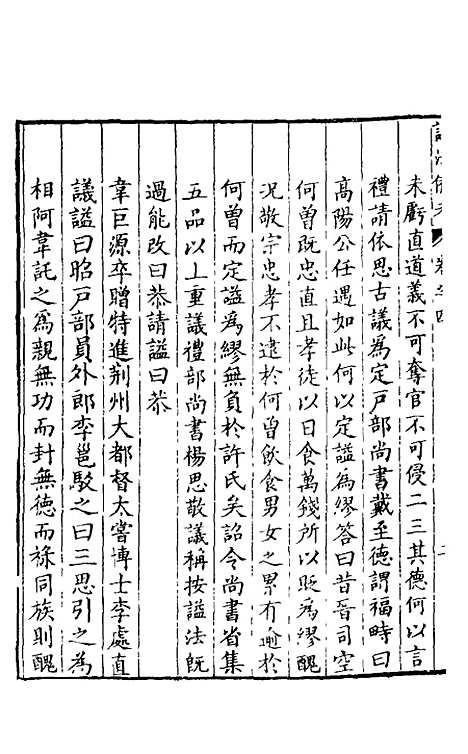 未虧直道義不可奪官不可侵二三其德何以言
禮請依思古議為定戶部尚書戴至德謂福畤曰
高陽公任遇如此何以定謚為繆答曰昔晉司空
何曾既忠直且孝徒以日食萬錢所以貶為繆醜
況敬宗忠孝不逮於何曾飲食男女之累有逾於
何曾而定謚為繆無負於許氏矣詔令尚書省集
五品以上重議禮部尚書楊思敬議稱按謚法既
過能改曰恭請謚曰恭
韋巨源卒贈特進荆州大都督太嘗博士李處直
議謚曰昭戶部員外郎李邕駁之曰三思引之為
相阿韋託之為親無功而封無德而祿同族則醜